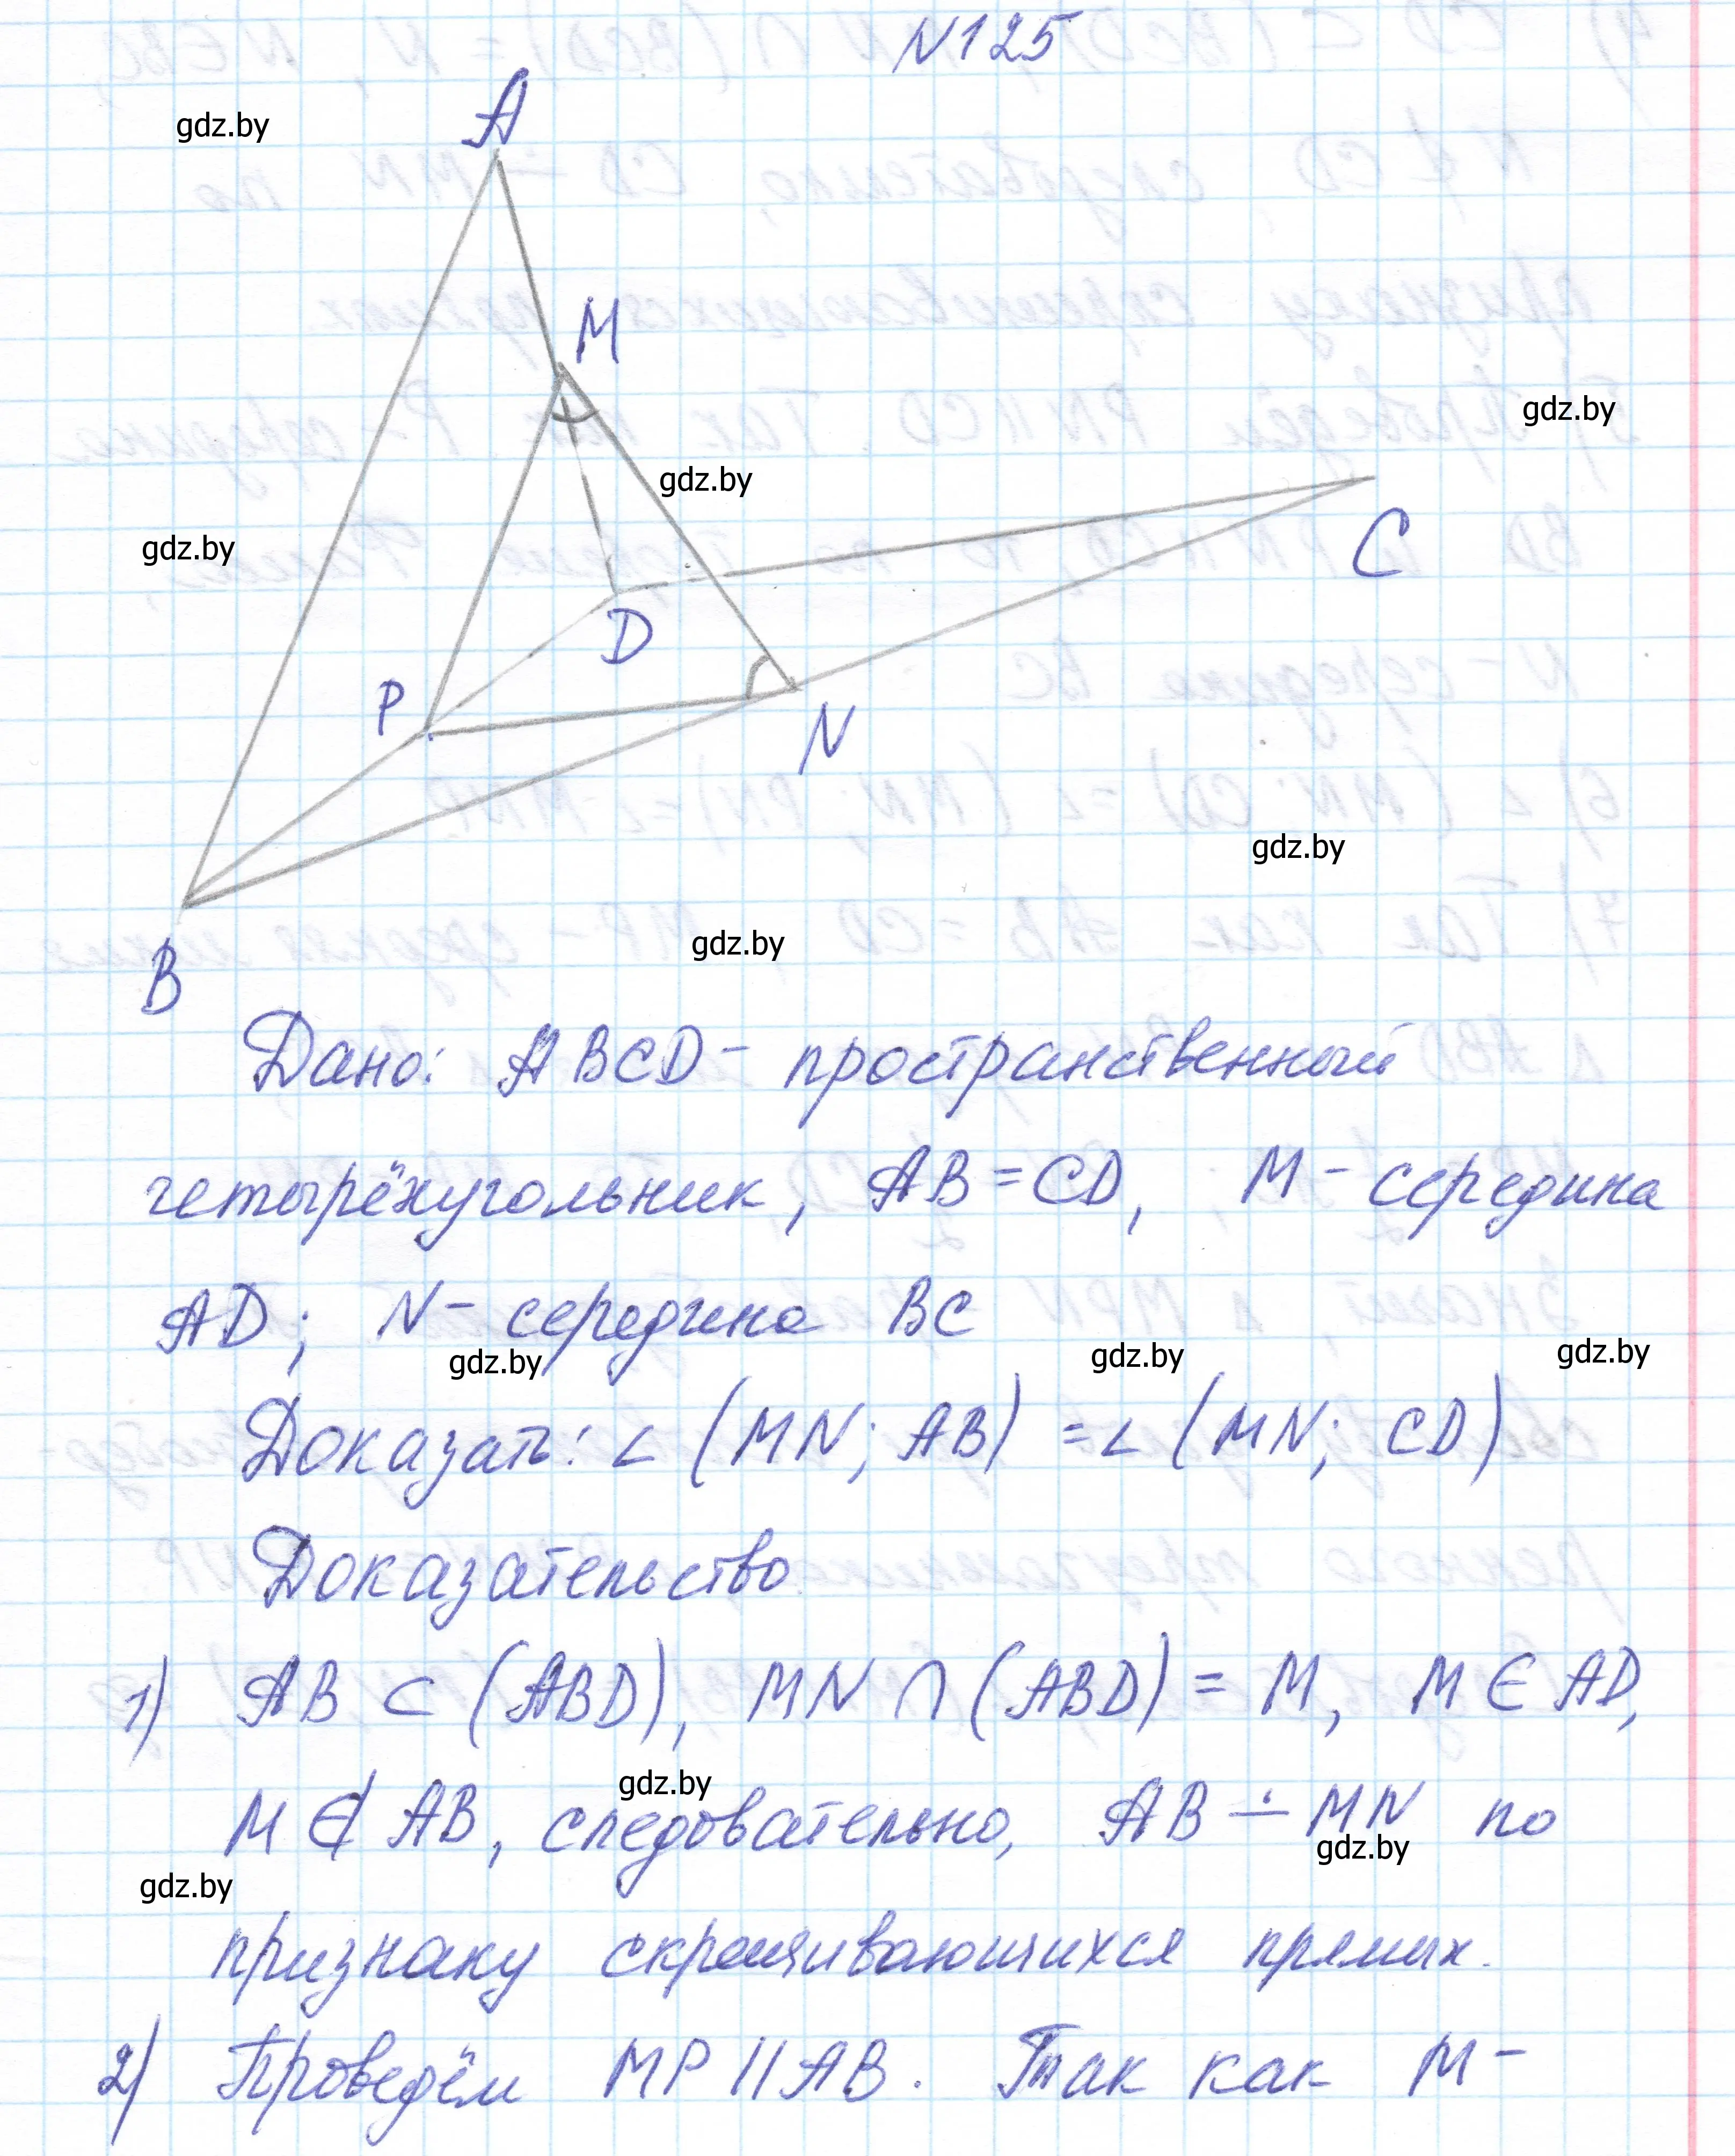 N125
A
gdz.by
M
gdz.by
gdz.by
gdz.by
C
D
P
N
gdz.by
gdz.by
B
Дано: ABCD - пространственный
четырёхугольник, AB = CD, M - середина
AD; N - середина BC
gdz.by gdz.by gdz.by
Доказать: ∠ (MN; AB) = ∠ (MN; CD)
Доказательство
1) AB ⊂ (ABD), MN ∩ (ABD) = M, M ∈ AD,
gdz.by
M ∉ AB, следовательно, AB ∸ MN по
gdz.by
gdz.by
признаку скрещивающихся прямых.
2) Проведём MP || AB. Так как M -